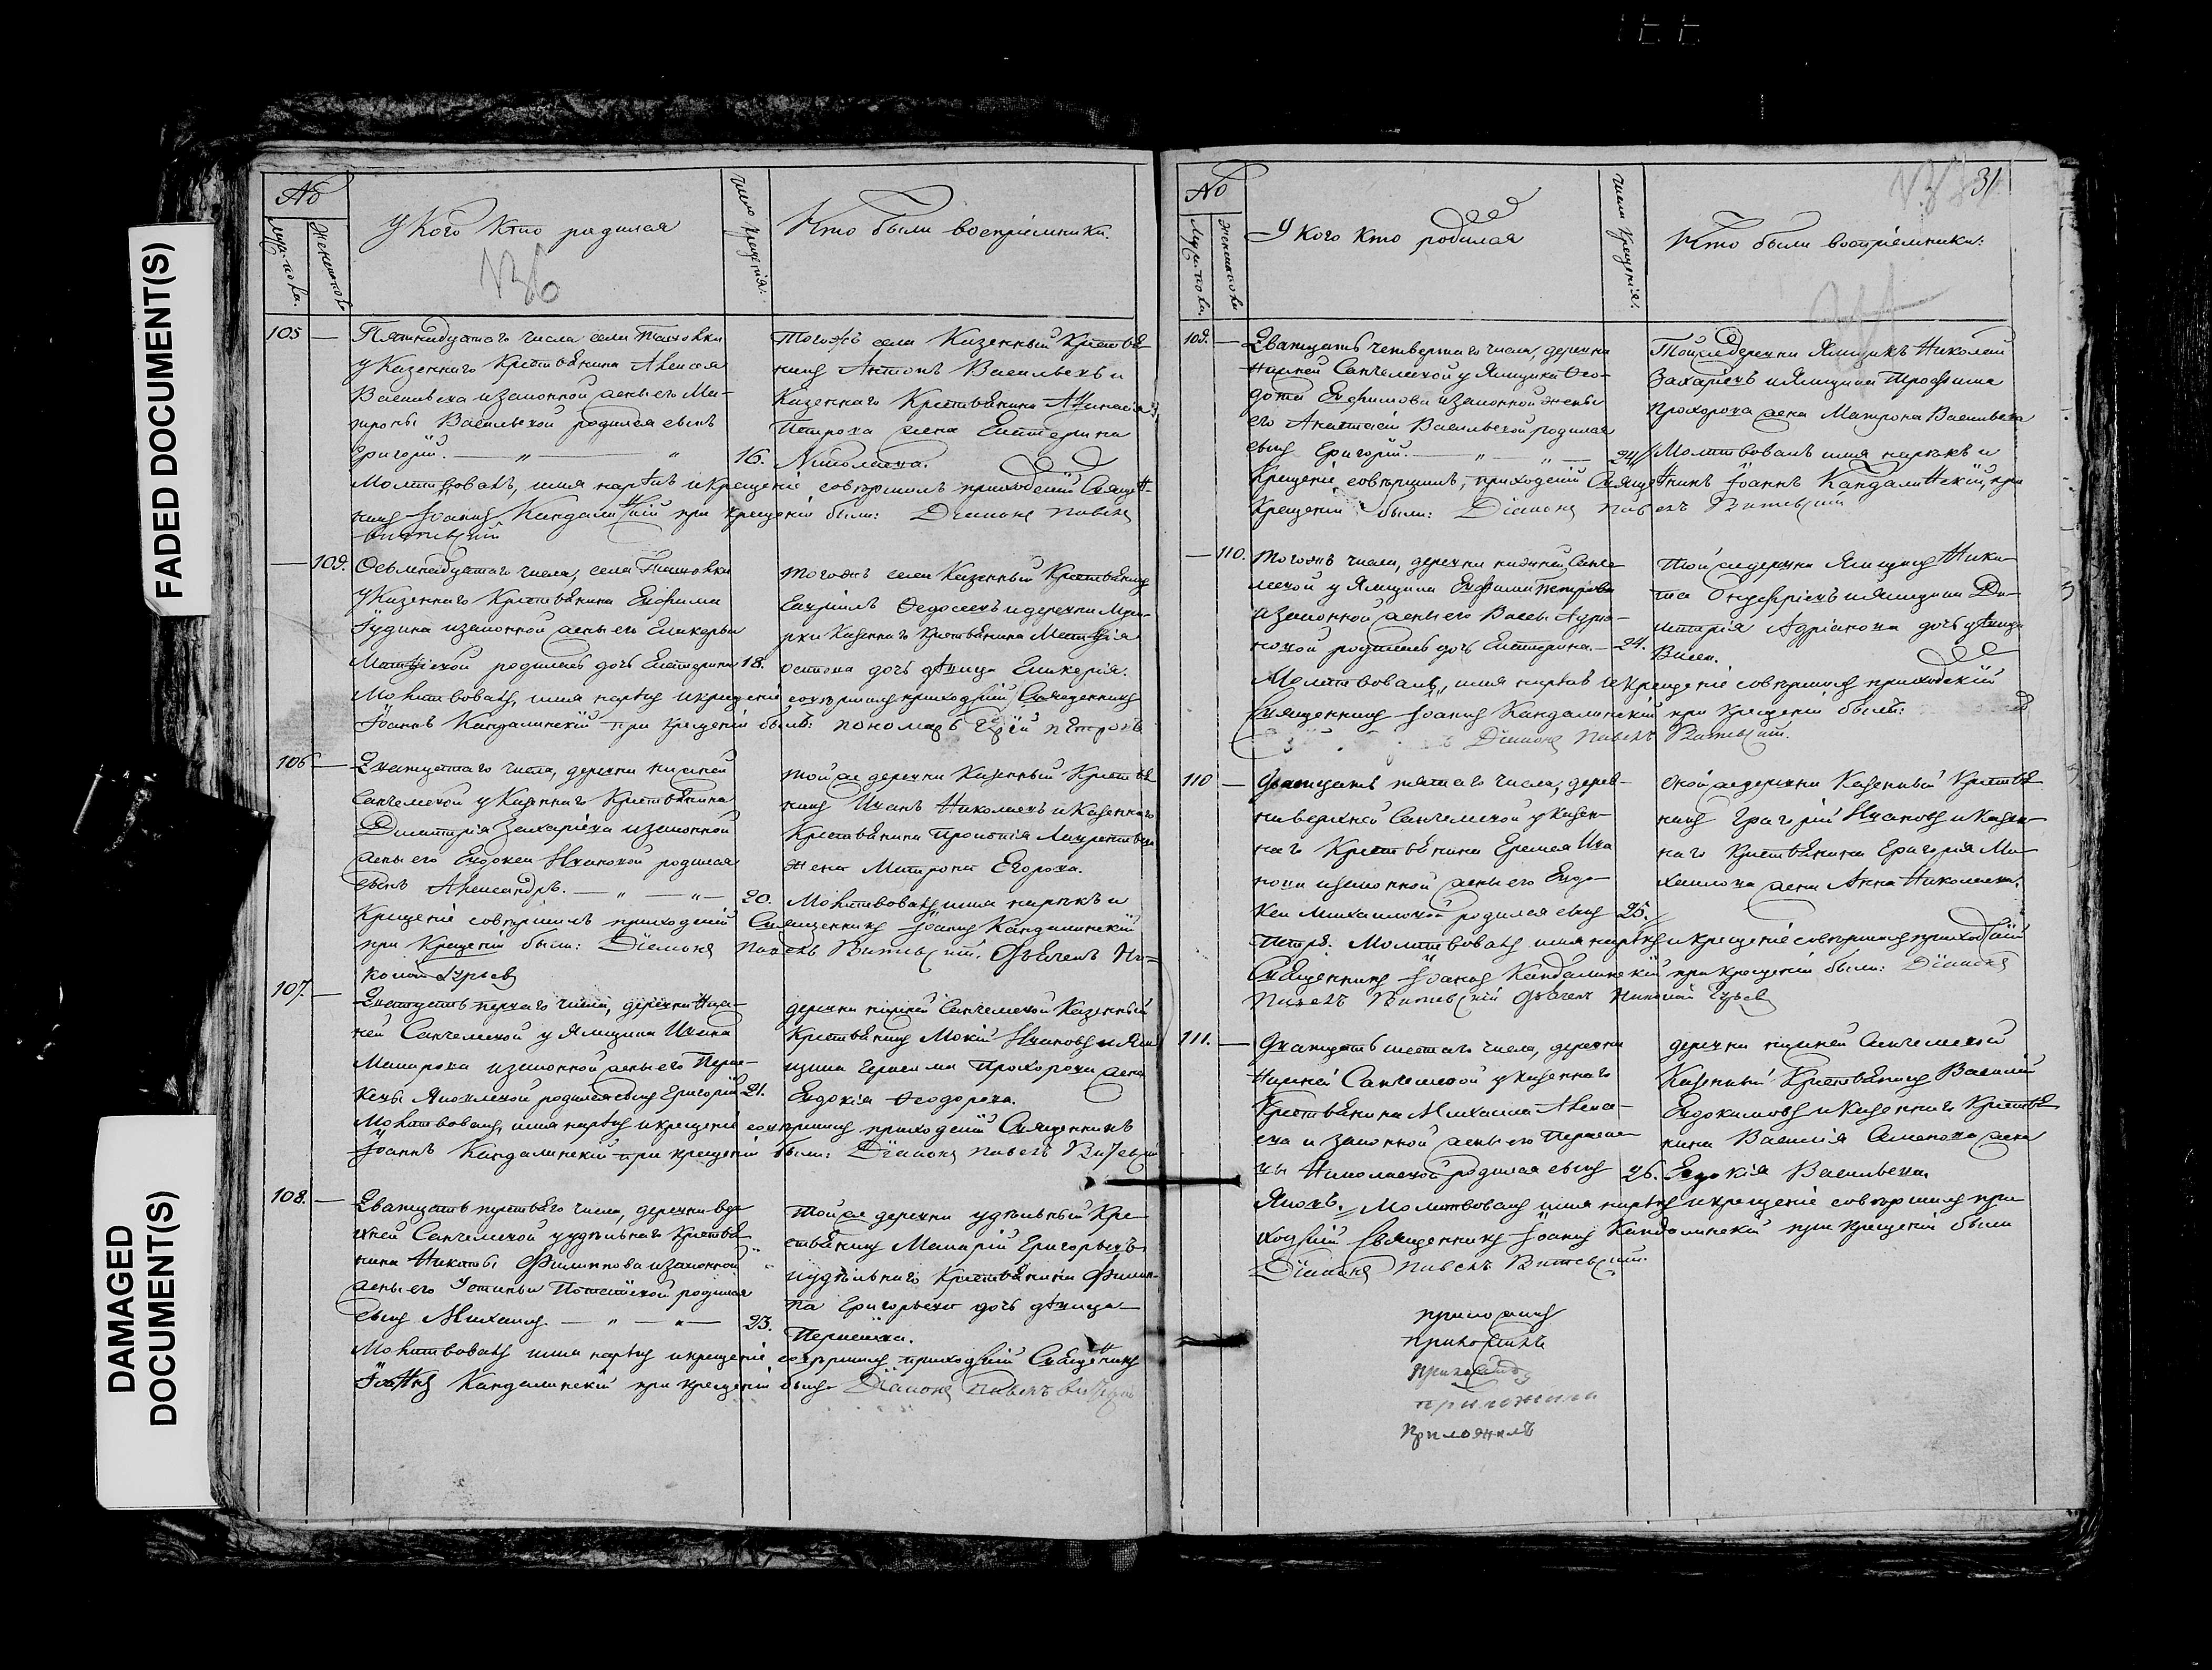 FADED DOCUMENT(S)
DAMAGED
DOCUMENT(S)
№
Мужеска.
Женска
У кого кто родился
число крещенія.
Кто были воспріемники.
136
105 —
Пятнадцатаго числа села
у Казеннаго Крестьянина Алексея
Васильева и законной жены его Ма-
троны Васильевой родился сынъ
Григорій. — „ — „ 16.
Тогожъ села Казенный Крестья
нинъ Антонъ Васильевъ и
Казеннаго Крестьянина Афанасія
Петрова жена Екатерина
Николаева.
Молитвовалъ, имя нарекъ и крещеніе совершилъ приходскій Священ-
никъ Іоаннъ Кандалинскій при крещеніи были: Діаконъ Павелъ
Витевскій
— 109.
Осьмнадцатаго числа, села
у Казеннаго Крестьянина Ефима
Іудина и законной жены его Гликерьи
Матвѣевой родилась дочь Екатерина 18.
тогожъ села Казенный Крестьянинъ
Гавріилъ Федосеевъ и деревни
Казеннаго Крестьянина Матвѣя
дочь дѣвица Гликерія.
Молитвовалъ, имя нарекъ и крещеніе совершилъ приходскій Священникъ
Іоаннъ Кандалинскій при крещеніи былъ: пономарь Петровъ
106 —
Двадцатаго числа, деревни нижней
Санчелеевой у Казеннаго Крестьянина
Димитрія Захаріева и законной
жены его Евдокеи Ивановой родился
сынъ Александръ. — „ — „ — 20.
той же деревни Казенный Крестья
нинъ Иванъ Николаевъ и Казеннаго
Крестьянина Прокопія Лаврентьева
жена Матрона Егорова.
Молитвовалъ имя нарекъ и
Крещеніе совершилъ приходскій Священникъ Іоаннъ Кандалинскій
при Крещеніи были: Діаконъ Павелъ Витевскій. Дьячекъ Ни-
колай Гурьевъ
107. —
Двадцать перваго числа, деревни Ниж-
ней Санчелеевой у Ямщика Ивана
Макарова и законной жены его Перас-
кевы Яковлевой родился сынъ Григорій 21.
деревни нижней Санчелеевой Казенный
Крестьянинъ Мокій Ивановъ и Ям
щика Герасима Прохорова жена
Евдокія Феодорова.
Молитвовалъ, имя нарекъ и крещеніе совершилъ приходскій Священникъ
Іоаннъ Кандалинскій при крещеніи были: Діаконъ Павелъ Витевскій
108. —
Двадцать третьяго числа, деревни вер
хней Санчелеевой у удѣльнаго Крестья
нина Никиты Филиппова и законной
жены его Устиньи родился
сынъ Михаилъ — „ — „ — 23.
Той же деревни удѣльный Кре-
стьянинъ Макарій Григорьевъ
и удѣльнаго Крестьянина Филип-
па Григорьева дочь дѣвица
Молитвовалъ имя нарекъ и крещеніе совершилъ приходскій Священникъ
Іоаннъ Кандалинскій при крещеніи были Діаконъ Павелъ Витевскій
31
№
Мужеска.
Женска
У кого кто родился
число крещенія.
Кто были воспріемники:
109. —
Двадцать четвертаго числа, деревни
Нижней Санчелеевой у Ямщика Фео-
дота Ефимова и законной жены
его Анастасіи Васильевой родился
сынъ Григорій. — „ — „ — 24
Той же деревни Ямщикъ Николай
Захаріевъ и Ямщика Трофима
Прохорова жена Матрона Васильева
Молитвовалъ имя нарекъ и
Крещеніе совершилъ, приходскій Священникъ Іоаннъ Кандалинскій, при
Крещеніи были: Діаконъ Павелъ Витевскій
— 110.
Тогожъ числа, деревни нижней Санче
леевой у Ямщика Ефима Петрова
и законной жены его
родилась дочь Екатерина. — 24.
Той же деревни Ямщикъ Ники-
та Онуфріевъ и Ямщика Ди-
митрія Адріанова дочь дѣвица
Молитвовалъ, имя нарекъ и Крещеніе совершилъ приходскій
Священникъ Іоаннъ Кандалинскій при крещеніи были:
Діаконъ Павелъ Витевскій.
110 —
Двадцать пятаго числа, дерев-
ни верхней Санчелеевой у Казен-
наго Крестьянина Еремея Ива
нова и законной жены его Евдо-
кеи Михайловой родился сынъ 25.
оной же деревни Казенный Крестья
нинъ Григорій Ивановъ и Казен-
наго Крестьянина Григорія Ми-
хайлова жена Анна Николаева.
Петръ. Молитвовалъ имя нарекъ и крещеніе совершилъ приходскій
Священникъ Іоаннъ Кандалинскій при крещеніи были: Діаконъ
Павелъ Витевскій Дьячекъ Николай Гурьевъ
111. —
Двадцать шестаго числа, деревни
Нижней Санчелеевой у Казеннаго
Крестьянина Михаила Алексе-
ева и законной жены его Пераске-
вы Николаевой родился сынъ 26.
деревни нижней Санчелеевой
Казенный Крестьянинъ Василій
Евдокимовъ и Казеннаго Крестья
нина Василія Семенова жена
Евдокія Васильева.
Яковъ. Молитвовалъ имя нарекъ и крещеніе совершилъ при
ходскій Священникъ Іоаннъ Кандалинскій при крещеніи были
Діаконъ Павелъ Витевскій.
приложилъ
приложилъ
приложила
приложилъ